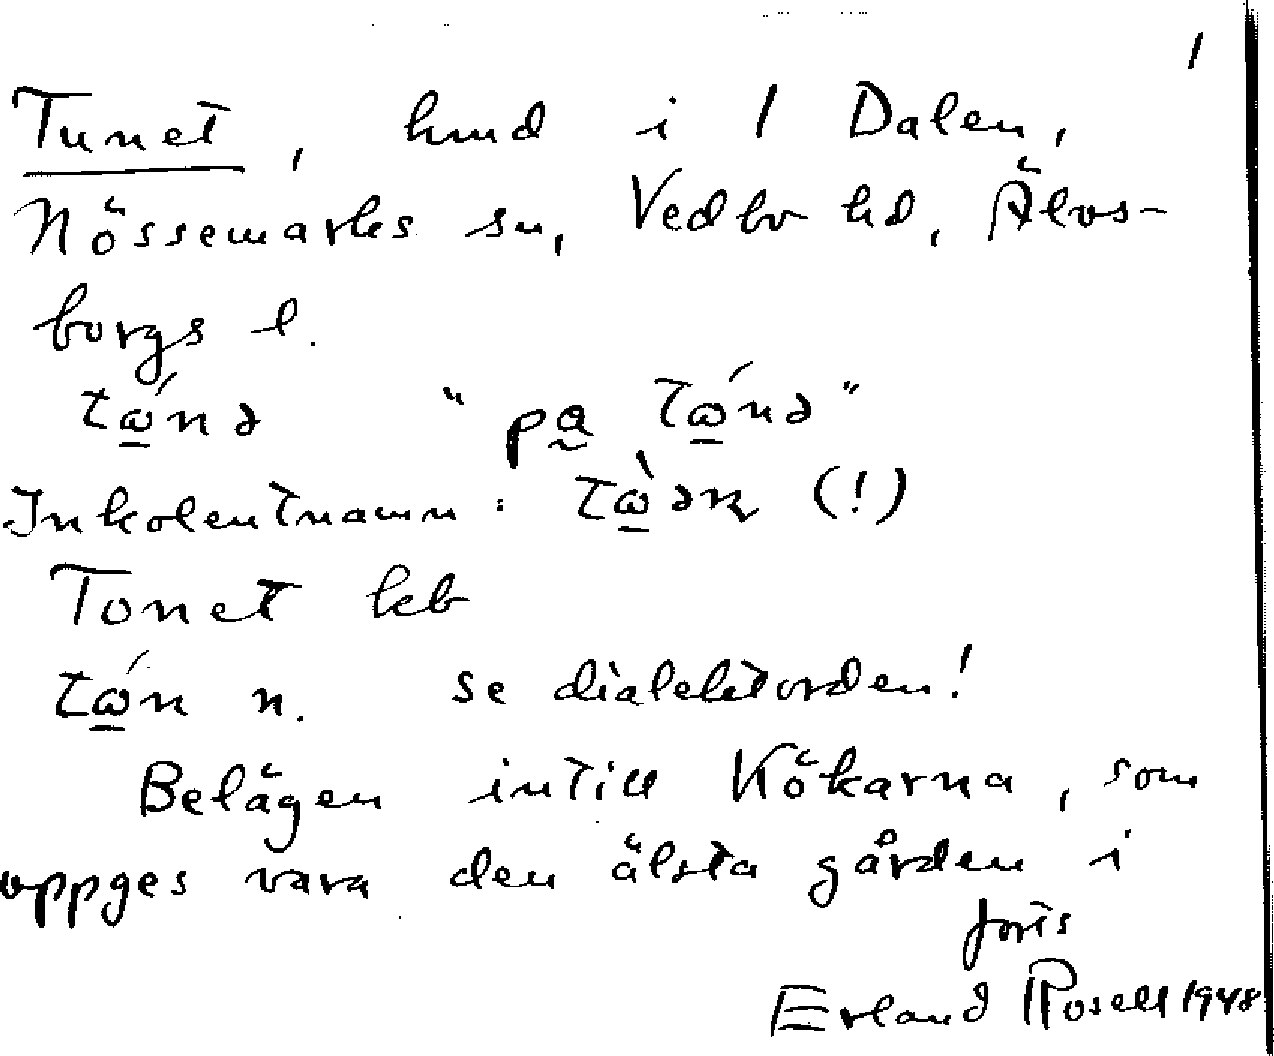 1
Tunet, hmd i 1 Dalen,
Nössemarks sn, Vedbo hd, Älvs-
borgs l.
tώ̱nə "pa̰ tώ̱nə"
Inkolentnamn: tὼ̱əɳ (!)
Tonet kb
tώ̱n n. se dialektorden!
Belägen intill Kökarna, som
uppges vara den älsta gården i
forts
Erland Rosell 1948